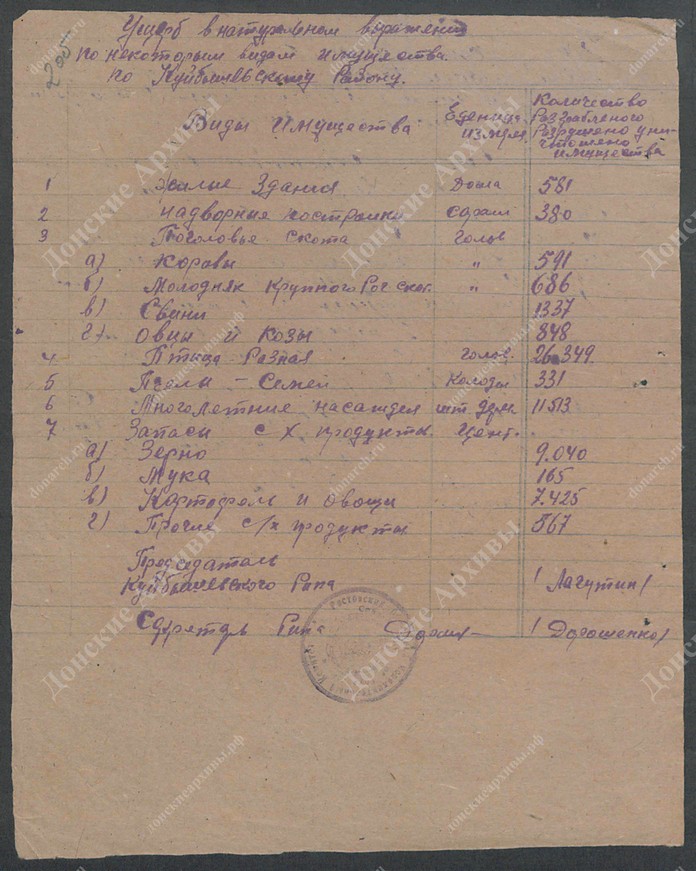 205
Ущерб в натуральном выражении
по некоторым видам имущества
по Куйбышевскому Району.
Виды имущества Единиц. измер. Количество Разграбленого Разрушено уни-чтожено имущества
1 жилые здания Дома 581
2 надворные постройки сараи 380
3 Поголовье скота голов
а) Коравы " 591
б) Молодняк Крупного Рог скот. " 686
в) Свини 1337
г) Овцы и Козы 848
4 Птица Разная голов. 26.349
5 Пчелы – Семей Колоды 331
6 Многолетние насажден шт дерев. 11513
7 Запасы с х продукты. цент.
а) Зерно 9.040
б) Мука 165
в) Картофель и овощи 7.425
г) Прочие с/х продукты 567
Председатель
Куйбышевского Рика /Лагутин/
Секретарь Рика /Дорошенко/
Донские Архивы
donarch.ru
донскиеархивы.рф